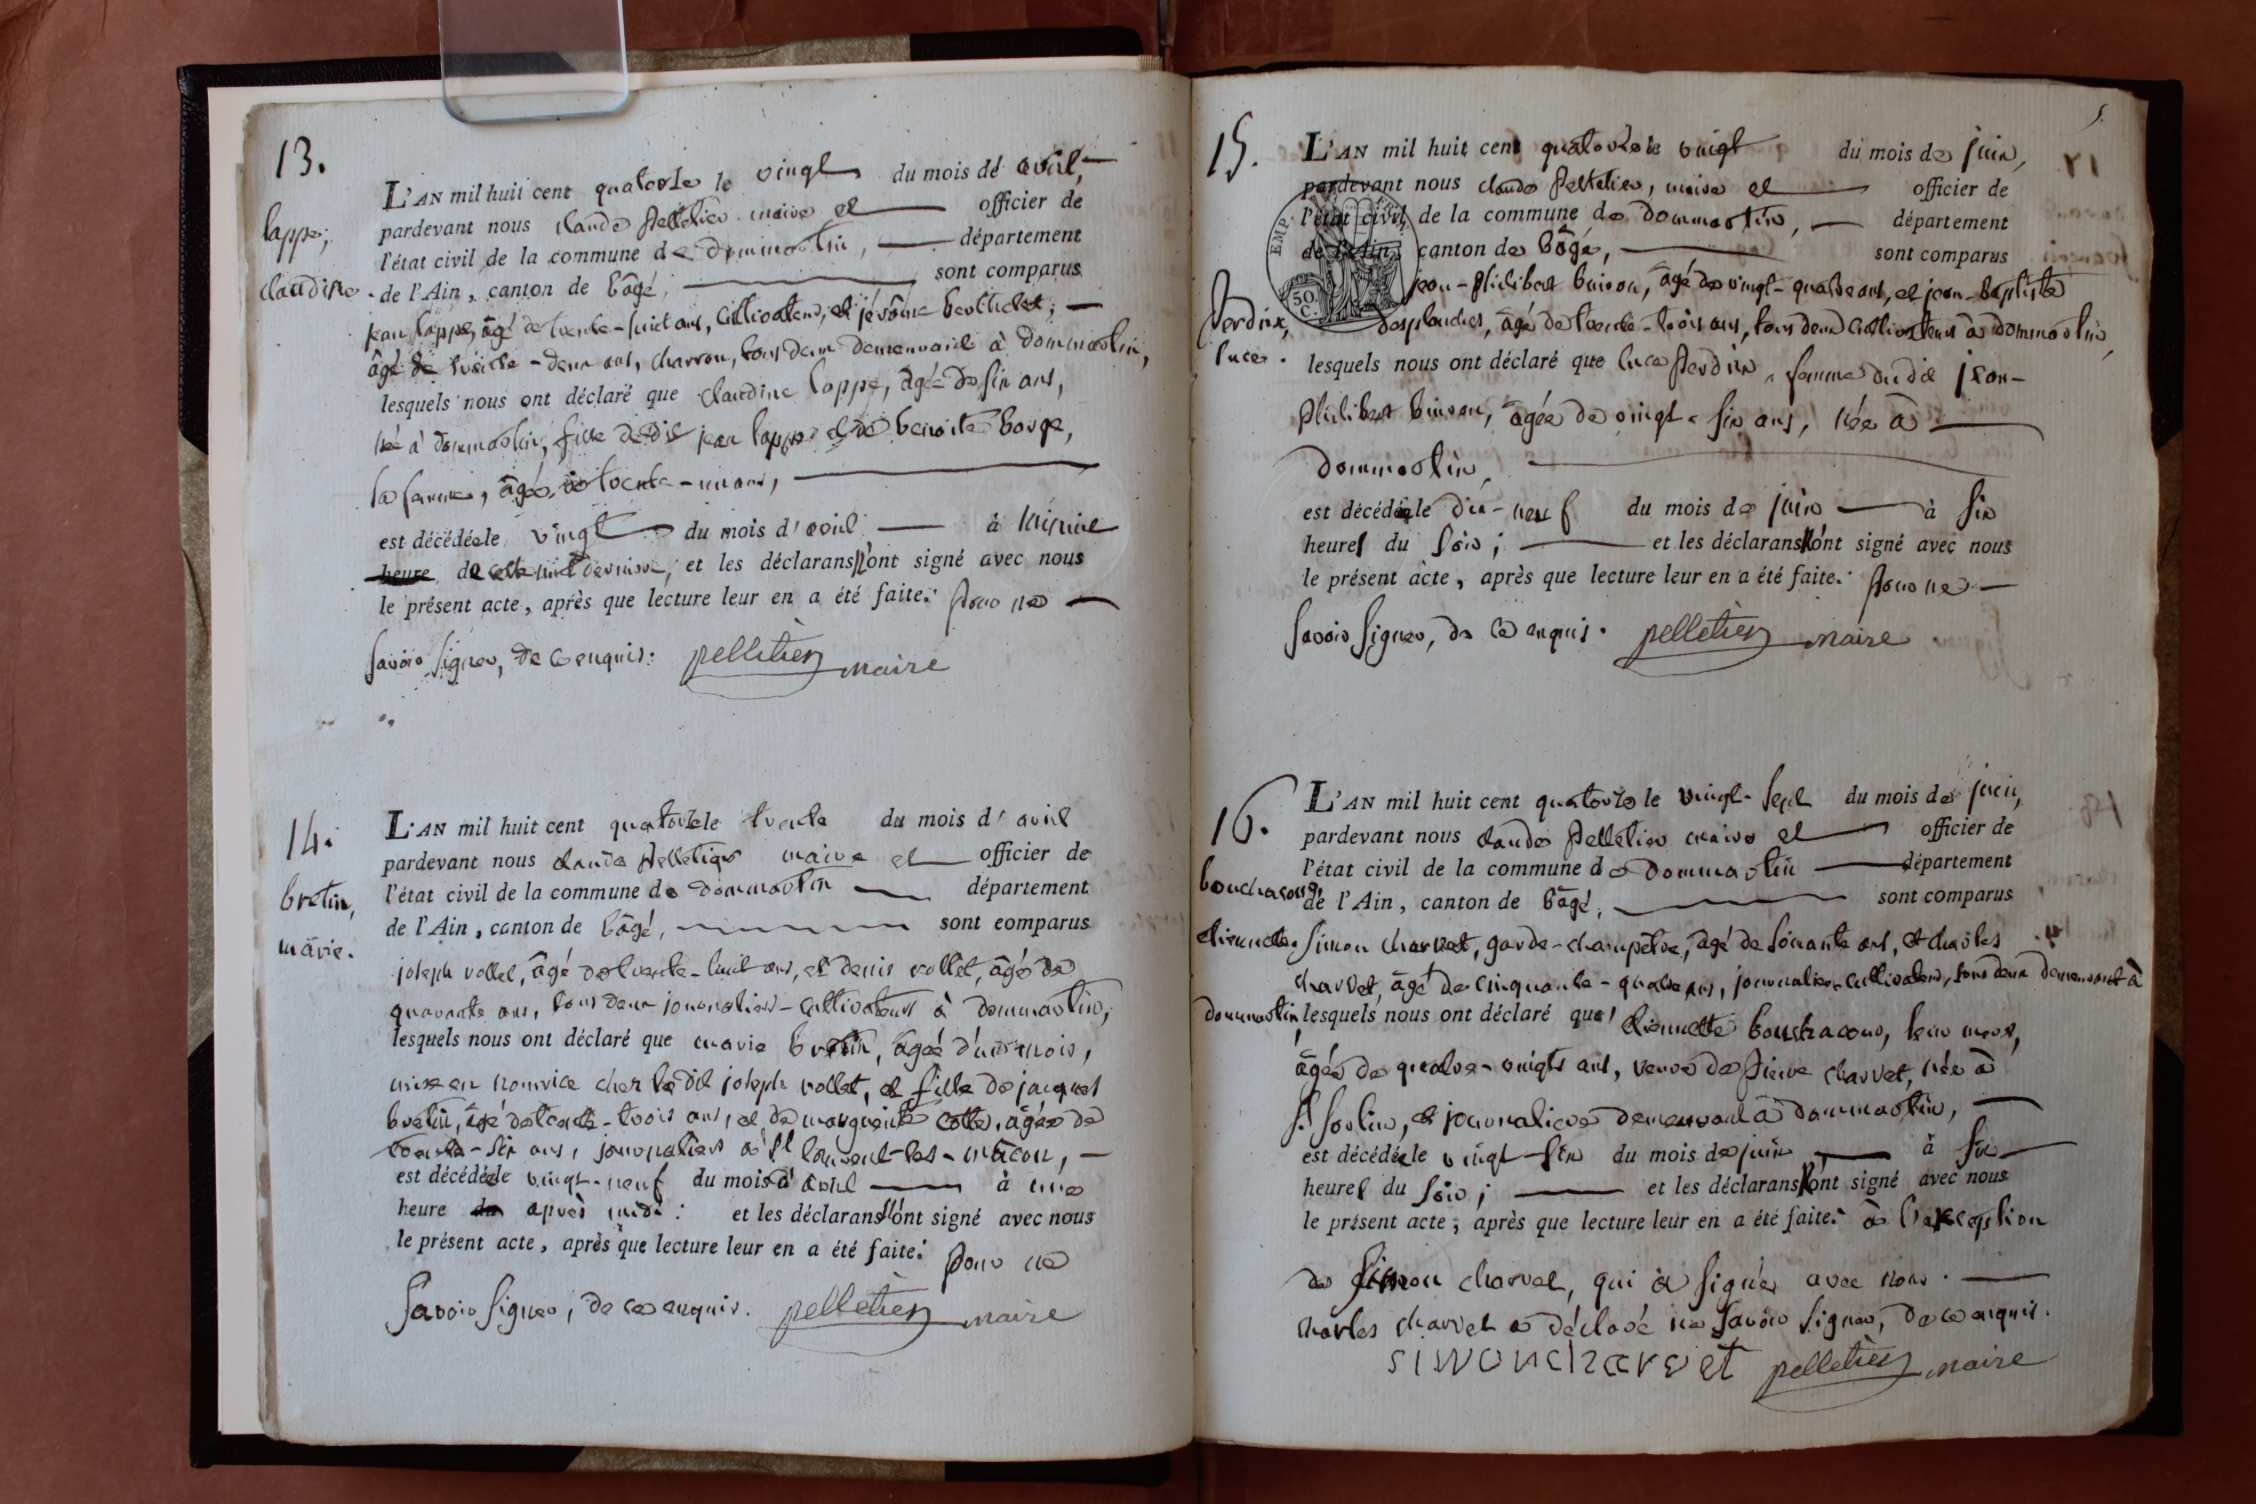 13.
lappe,
claudine.
L'AN mil huit cent quatorze le vingt du mois de avril,
pardevant nous claude pelletier maire et officier de
l'état civil de la commune de dommartin, département
de l'Ain, canton de bâgé, sont comparus
jean lappe, âgé de trente-huit ans, cultivateur, et jérôme berthelet,
âgé de trente-deux ans, charron, tous deux demeurant à dommartin,
lesquels nous ont déclaré que claudine lappe, âgée de six ans,
née à dommartin, fille dudit jean lappe et de benoite borge,
sa femme, âgée de trente-un ans,
est décédée le vingt du mois d'avril à
heure de nuit dernière, et les déclarans n'ont signé avec nous
le présent acte, après que lecture leur en a été faite. pour ne
savoir signer, de ce enquis. pelletier maire
14.
bretin,
marie.
L'AN mil huit cent quatorze le trente du mois d'avril
pardevant nous claude pelletier maire et officier de
l'état civil de la commune de dommartin département
de l'Ain, canton de bâgé, sont comparus
joseph vollet, âgé de trente-huit ans, et denis vollet, âgé de
quarante ans, tous deux journaliers-cultivateurs à dommartin,
lesquels nous ont déclaré que marie bretin, âgée d'un mois,
mise en nourrice chez ledit joseph vollet, et fille de jacques
bretin, âgé de trente-trois ans, et de marguerite cotte, âgée de
trente-six ans, journaliers à st laurent-les-mâcon,
est décédée le vingt-neuf du mois d'avril à une
heure du après midi : et les déclarans n'ont signé avec nous
le présent acte, après que lecture leur en a été faite. pour ne
savoir signer, de ce enquis. pelletier maire
5.
15.
perdrix,
luce.
EMP.
50
C.
L'AN mil huit cent quatorze le vingt du mois de juin,
pardevant nous claude pelletier, maire et officier de
l'état civil de la commune de dommartin, département
de l'Ain, canton de bâgé, sont comparus
jean-philibert buiron, âgé de vingt-quatre ans, et jean-baptiste
desplanches, âgé de trente-trois ans, tous deux cultivateurs à dommartin,
lesquels nous ont déclaré que luce perdrix, femme dudit jean-
philibert buiron, âgée de vingt-six ans, née à
dommartin,
est décédée le dix-neuf du mois de juin à six
heures du soir ; et les déclarans n'ont signé avec nous
le présent acte, après que lecture leur en a été faite. pour ne
savoir signer, de ce enquis. pelletier maire
16.
bouchacourt,
étiennette.
L'AN mil huit cent quatorze le vingt-sept du mois de juin,
pardevant nous claude pelletier maire et officier de
l'état civil de la commune de dommartin département
de l'Ain, canton de bâgé, sont comparus
simon charvet, garde-champêtre, âgé de soixante ans, et charles
charvet, âgé de cinquante-quatre ans, journalier-cultivateur, tous deux demeurant à
dommartin, lesquels nous ont déclaré que étiennette bouchacourt, leur mère,
âgée de quatre-vingts ans, veuve de pierre charvet, née à
st sorlin, et journalière demeurant à dommartin,
est décédée le vingt-six du mois de juin à six
heures du soir ; et les déclarans n'ont signé avec nous
le présent acte, après que lecture leur en a été faite. à l'exception
de simon charvet, qui a signé avec nous.
charles charvet a déclaré ne savoir signer, de ce enquis.
simoncharvet pelletier maire